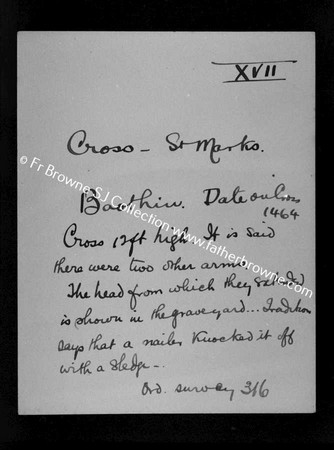 XVII
Cross - St Marks.
Date on Cross
1464
Cross 12ft high. It is said
there were two other arms
The head from which they extended
is shown in the graveyard... Tradition
says that a nailer knocked it off
with a sledge -.
Ord. survey 316
© Fr Browne SJ Collection www.fatherbrowne.com